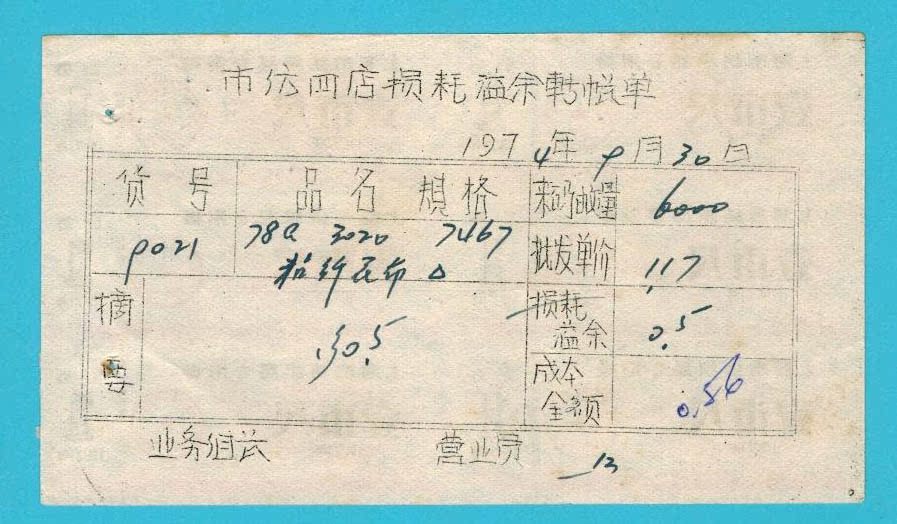 市纺四店损耗溢余转帐单
1974年9月30日
货号 品名 规格 来码数量 6000
9021 78a 3020 7467 批发单价 1.17
粘纤花布
摘要 30.5 损耗溢余 0.5
成本金额 0.56
业务组长 营业员